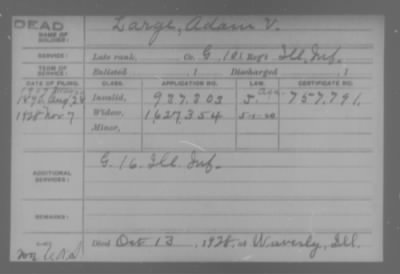 DEAD
NAME OF SOLDIER: Large, Adam V.
SERVICE: Late rank, Co. G, 101 Reg't Ill. Inf.
TERM OF SERVICE: Enlisted , 1 Discharged , 1
DATE OF FILING. CLASS. APPLICATION NO. LAW. CERTIFICATE NO.
1890 Aug 28 Invalid, 937.803 757,791.
1928 Nov 7 Widow, 1627,354 5-1-20
Minor,
ADDITIONAL SERVICES: G. 16. Ill. Inf.
REMARKS:
Died Oct 13, 1928, at Waverly, Ill.